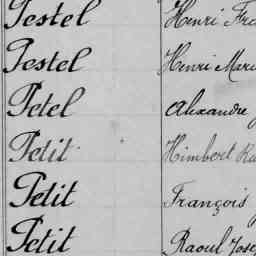 Pestel Henri
Pestel Henri
Petel Alexandre
Petit Himbert
Petit François
Petit Raoul